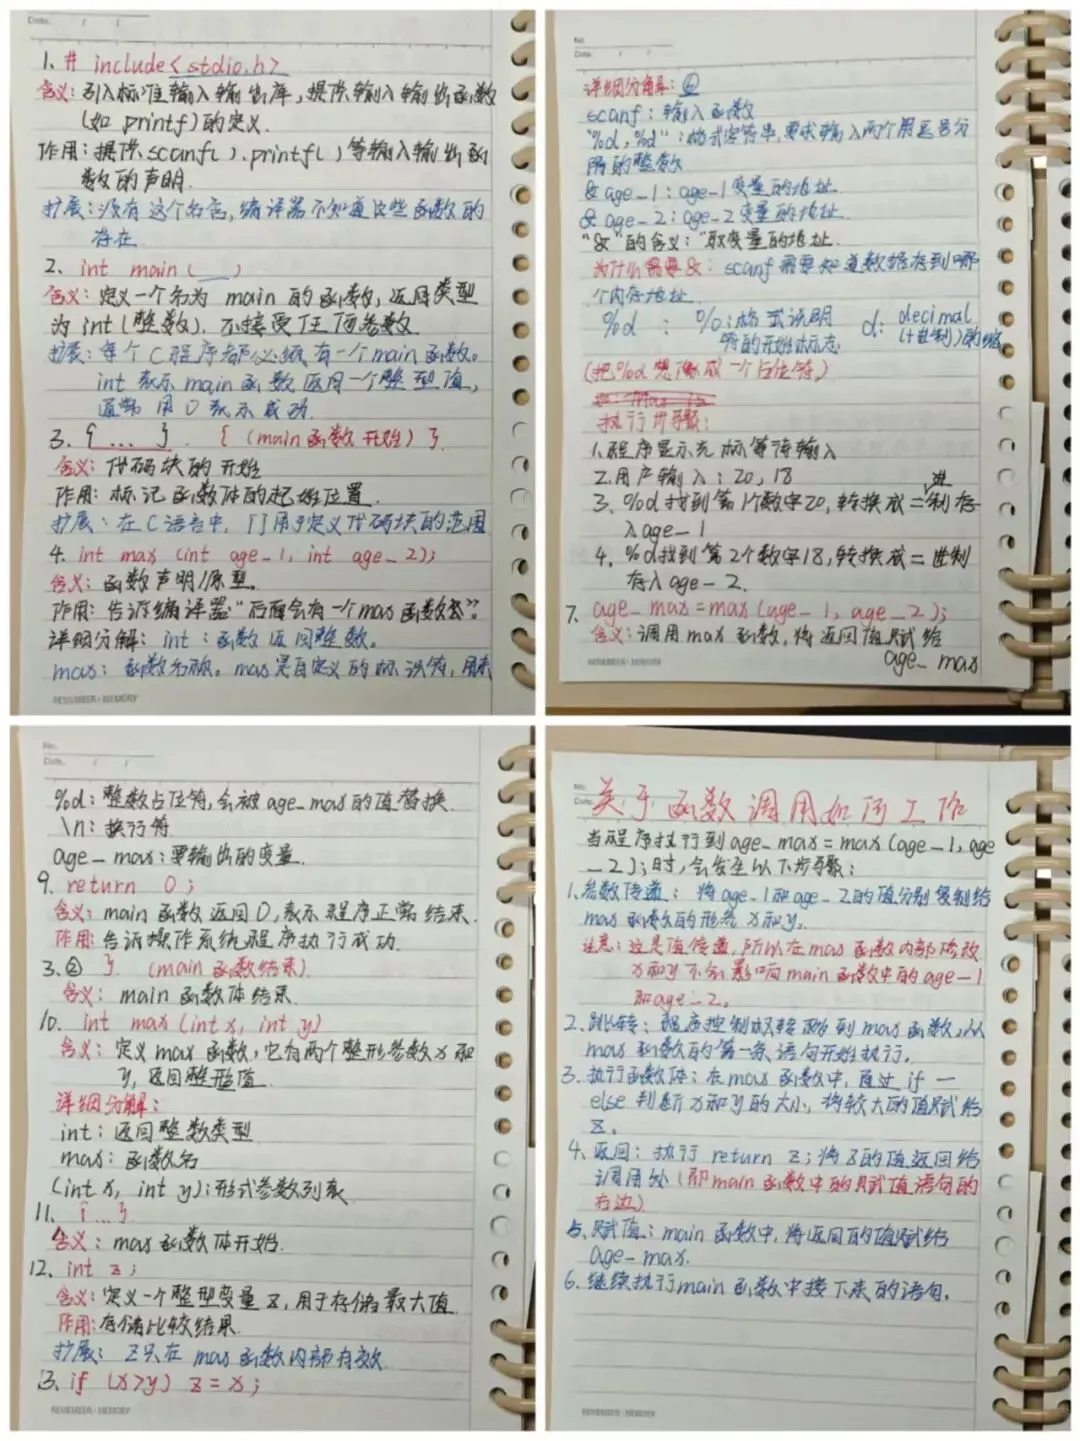 Date.
1. # include<stdio.h>
含义: 引入标准输入输出库, 提供输入输出函数
(如 printf)的定义.
作用: 提供scanf( ).printf( )等输入输出函
数的声明.
扩展: 没有这个包含, 编译器不知道这些函数的
存在
2、int main(__)
含义: 定义一个名为 main 的函数, 返回类型
为 int(整数), 不接受任何参数
扩展: 每个C程序都必须有一个main函数。
int 表示main函数返回一个整型值,
通常用0表示成功.
3. {...} { (main函数开始) }
含义: 代码块的开始
作用: 标记函数体的起始位置.
扩展: 在C语言中, { }用于定义代码块的范围
4. int max (int age_1, int age_2);
含义: 函数声明/原型。
作用: 告诉编译器"后面会有一个max函数"。
详细分解: int : 函数返回整数。
max: 函数名称。max是自定义的标识符, 用来
REMEMBER·MEMORY
No.
Date.
详细分解: ②
scanf: 输入函数
"%d,%d": 格式字符串, 要求输入两个用逗号分
隔的整数
& age_1: age_1变量的地址.
& age_2: age_2变量的地址.
"&"的含义: "取变量的地址.
为什么需要&: scanf需要知道数据存到哪
个内存地址
%d : %: 格式说明 d: decimal
符的开始标志. (十进制)的缩
(把%d想像成一个占位符)
执行步骤:
1.程序显示光标等待输入
2.用户输入: 20, 18
3. %d找到第1个数字20, 转换成二进制存
入age_1
4. %d找到第2个数字18, 转换成二进制
存入age_2.
7. age_max=max(age_1, age_2);
含义: 调用max函数, 将返回值赋给
age_max
REMEMBER·MEMORY
No.
Date.
%d: 整数占位符, 会被age_max的值替换.
\n: 换行符.
age_max: 要输出的变量.
9. return 0;
含义: main函数返回0, 表示程序正常结束.
作用: 告诉操作系统程序执行成功.
3.② } (main函数结束)
含义: main函数体结束.
10. int max(int x, int y)
含义: 定义max函数, 它为两个整形参数x和
y, 返回整形值.
详细分解:
int: 返回整数类型
max: 函数名
(int x, int y): 形式参数列表
11. {...}
含义: max函数体开始.
12. int z;
含义: 定义一个整型变量z, 用于存储最大值.
作用: 存储比较结果.
扩展: z只在max函数内部有效.
13. if (x>y) z=x;
REMEMBER·MEMORY
No.
Date.
关于函数调用如何工作
当程序执行到age_max=max(age_1, age
_2);时, 会发生以下步骤:
1.参数传递: 将age_1和age_2的值分别复制给
max函数的形参x和y。
注意: 这是值传递, 所以在max函数内部修改
x和y不会影响main函数中的age_1
和age_2。
2.跳转: 程序控制权转移到max函数, 从
max函数的第一条语句开始执行。
3.执行函数体: 在max函数中, 通过if—
else判断x和y的大小, 将较大的值赋给
z。
4.返回: 执行return z; 将z的值返回给
调用处(即main函数中的赋值语句的
右边)
5.赋值: main函数中, 将返回的值赋给
age_max.
6.继续执行main函数中接下来的语句。
REMEMBER·MEMORY